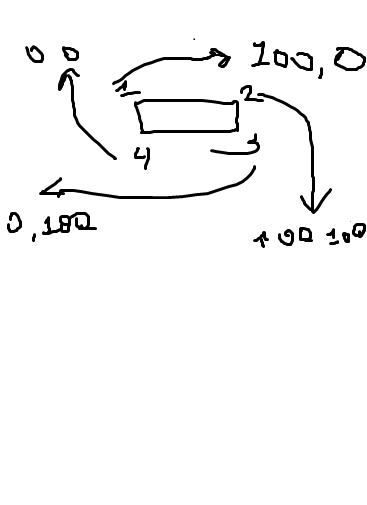 0 0
100,0
1
2
4
3
0,100
100 100